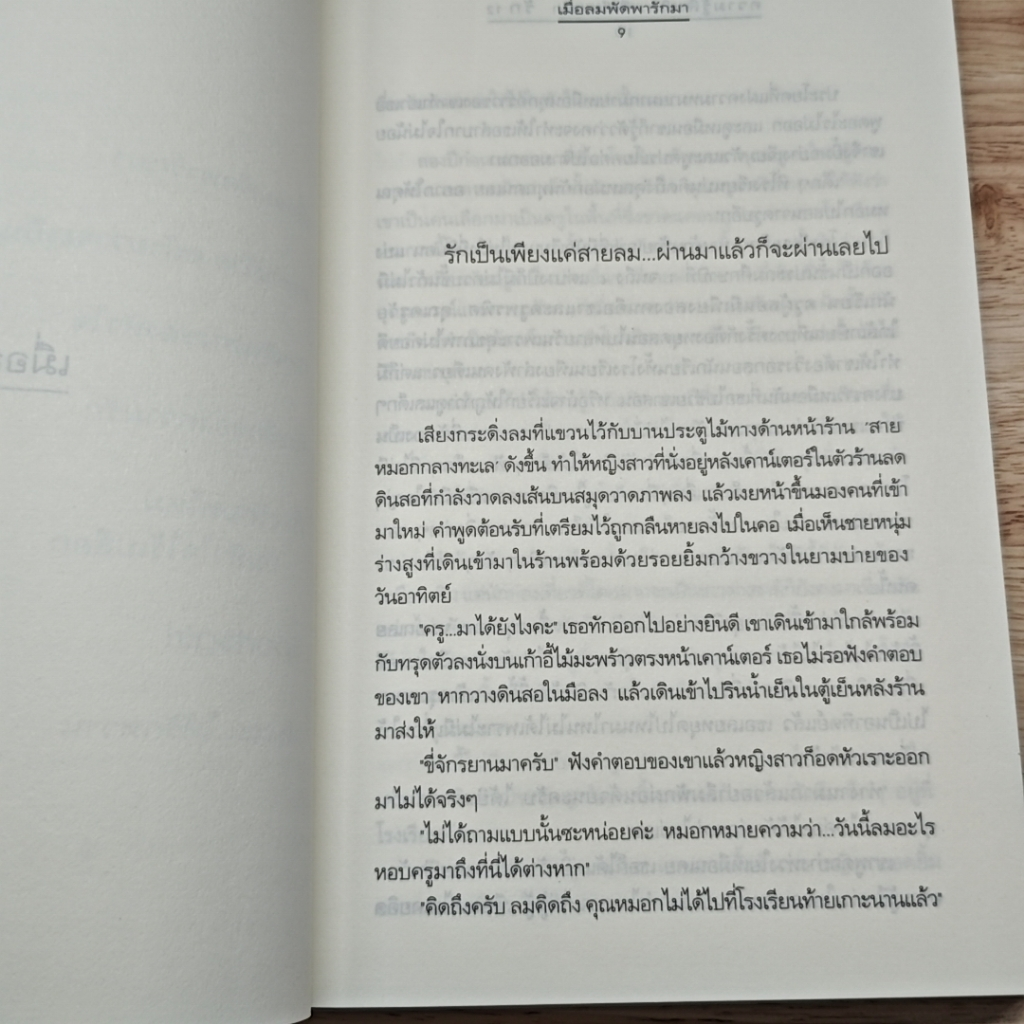 เมื่อลมพัดพารักมา
9
รักเป็นเพียงแค่สายลม...ผ่านมาแล้วก็จะผ่านเลยไป
เสียงกระดิ่งลมที่แขวนไว้กับบานประตูไม้ทางด้านหน้าร้าน 'สาย
หมอกกลางทะเล' ดังขึ้น ทำให้หญิงสาวที่นั่งอยู่หลังเคาน์เตอร์ในตัวร้านลด
ดินสอที่กำลังวาดลงเส้นบนสมุดวาดภาพลง แล้วเงยหน้าขึ้นมองคนที่เข้า
มาใหม่ คำพูดต้อนรับที่เตรียมไว้ถูกกลืนหายลงไปในคอ เมื่อเห็นชายหนุ่ม
ร่างสูงที่เดินเข้ามาในร้านพร้อมด้วยรอยยิ้มกว้างขวางในยามบ่ายของ
วันอาทิตย์
"ครู...มาได้ยังไงคะ" เธอทักออกไปอย่างยินดี เขาเดินเข้ามาใกล้พร้อม
กับทรุดตัวลงนั่งบนเก้าอี้ไม้มะพร้าวตรงหน้าเคาน์เตอร์ เธอไม่รอฟังคำตอบ
ของเขา หากวางดินสอในมือลง แล้วเดินเข้าไปรินน้ำเย็นในตู้เย็นหลังร้าน
มาส่งให้
"ขี่จักรยานมาครับ" ฟังคำตอบของเขาแล้วหญิงสาวก็อดหัวเราะออก
มาไม่ได้จริงๆ
"ไม่ได้ถามแบบนั้นซะหน่อยค่ะ หมอกหมายความว่า...วันนี้ลมอะไร
หอบครูมาถึงที่นี่ได้ต่างหาก"
"คิดถึงครับ ลมคิดถึง คุณหมอกไม่ได้ไปที่โรงเรียนท้ายเกาะนานแล้ว"